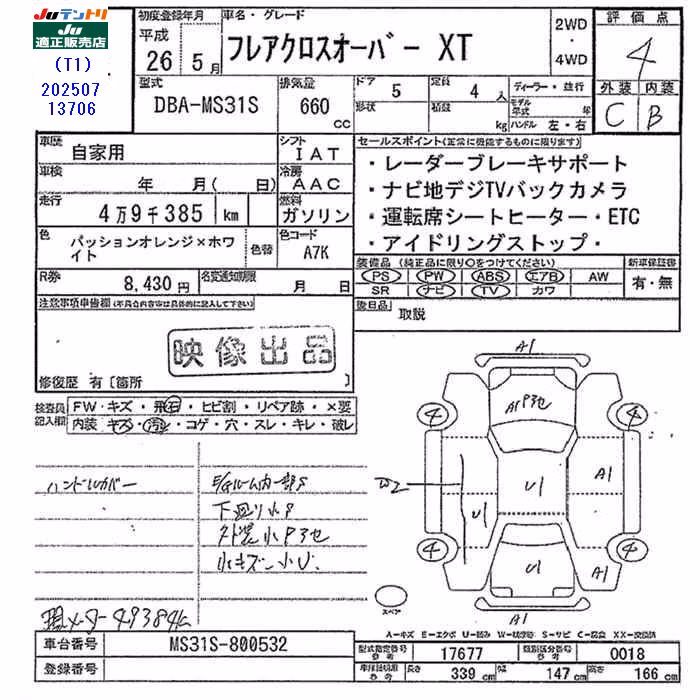 JUテントリ
JU
適正販売店
(T1)
202507
13706
初度登録年月
平成
26 5月
車名・グレード
フレアクロスオーバー XT
2WD
・
4WD
評価点
4
外装 内装
C B
型式
DBA-MS31S
排気量
660
cc
ドア
5
形状
定員
4 人
積載
kg
ディーラー・並行
モデル年式 年
ハンドル 左・右
車歴
自家用
シフト
IAT
車検
年 月( 日)
冷房
AAC
走行
4万9千385 km
燃料
ガソリン
色
パッションオレンジ×ホワイト
色替
色コード
A7K
R券
8,430円
名変通知期限
月 日
セールスポイント(正常に機能するものに限ります)
・レーダーブレーキサポート
・ナビ地デジTVバックカメラ
・運転席シートヒーター・ETC
・アイドリングストップ・
装備品 (純正品に限り○をつけてください)
PS PW ABS エアB AW
SR ナビ TV カワ
新車保証書
有・無
後日品
取説
注意事項申告欄(不具合内容等は具体的に記入して下さい)
映像出品
修復歴 有〔箇所 〕
検査員記入欄
FW・キズ・飛石・ヒビ割・リペア跡・×要
内装・キズ・汚れ・コゲ・穴・スレ・キレ・破レ
ハンドルカバー
E/gルーム内一部S
下廻り小P
外装小P他
小キズ小U
現メーター49384k
A1
A1P他
4 4
U1
A1
U2
U1
4 4
U1
A1
A1
スペア
A-キズ E-エクボ U-凹み W-補修跡 S-サビ C-腐食 XX-交換済
車台番号
MS31S-800532
登録番号
型式指定番号
参考
17677
類別区分番号
参考
0018
車検証記載
参考
長さ
339 cm
幅
147 cm
高さ
166 cm